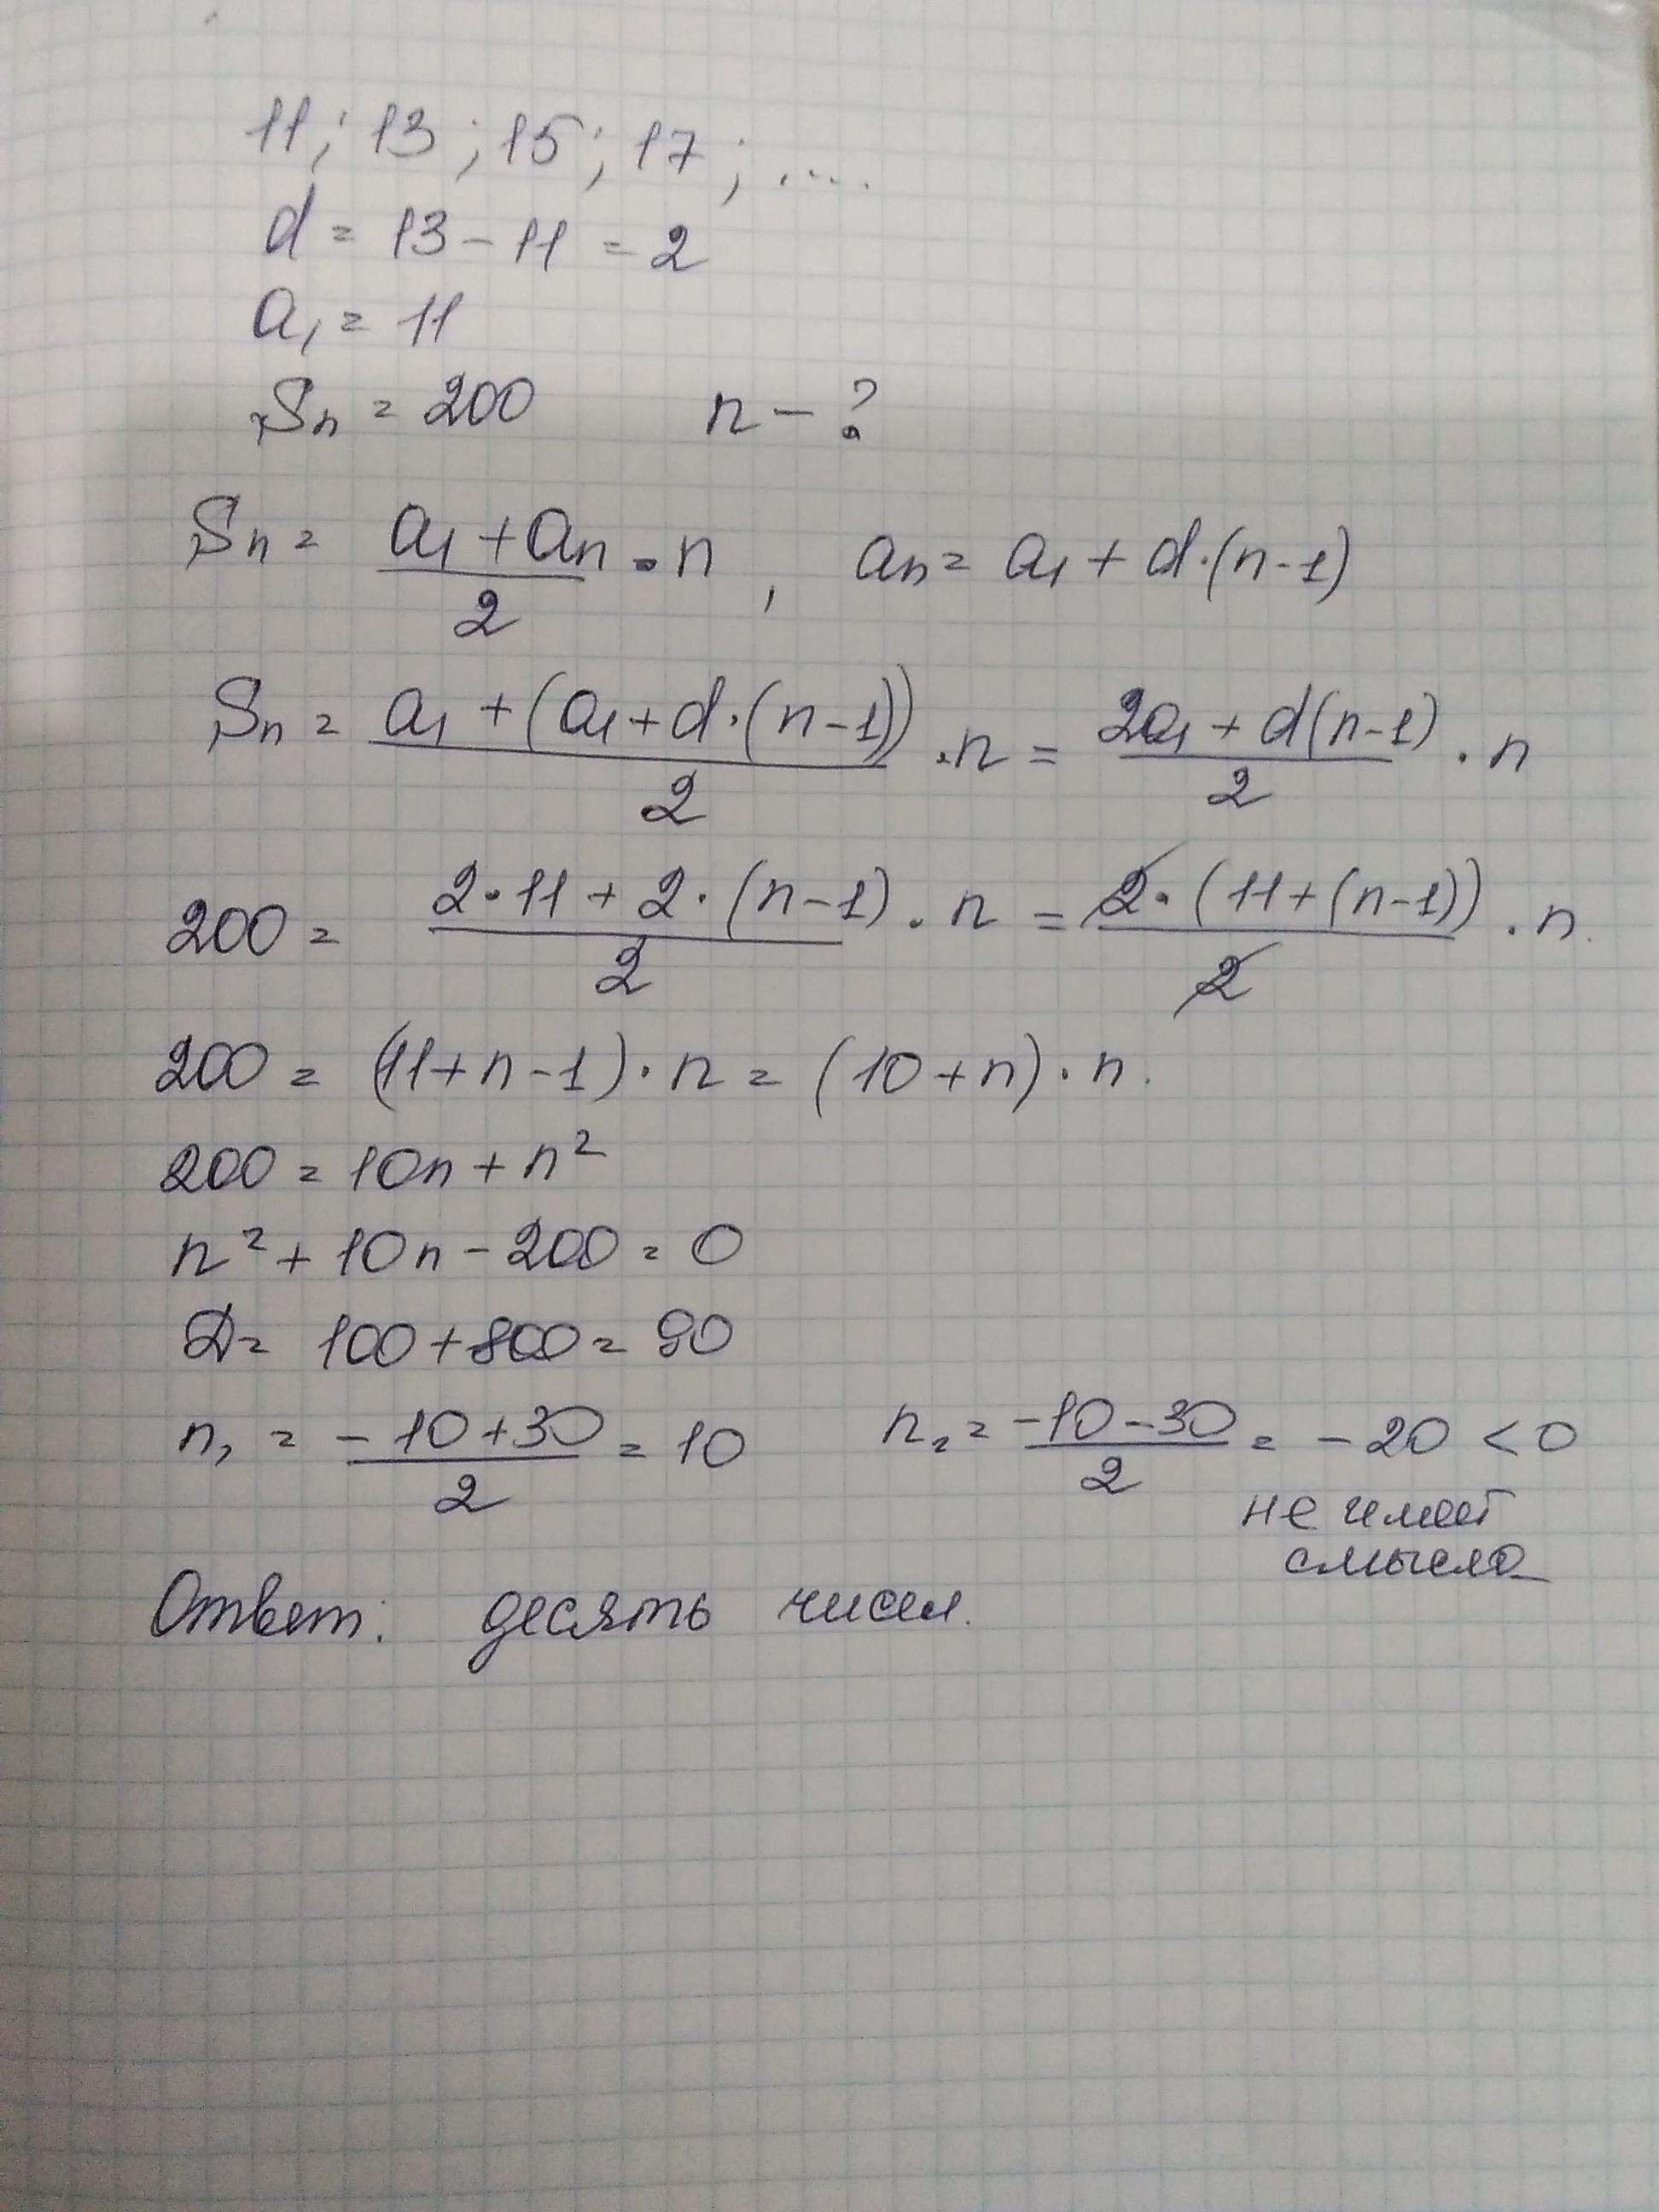 11; 13; 15; 17; ....
d = 13 - 11 = 2
a₁ = 11
Sn = 200 n - ?
Sn = (a₁ + an)/2 · n, an = a₁ + d·(n-1)
Sn = (a₁ + (a₁ + d·(n-1)))/2 · n = (2a₁ + d(n-1))/2 · n
200 = (2·11 + 2·(n-1))/2 · n = (2·(11 + (n-1)))/2 · n.
200 = (11 + n - 1)·n = (10 + n)·n.
200 = 10n + n²
n² + 10n - 200 = 0
D = 100 + 800 = 90
n₁ = (-10 + 30)/2 = 10 n₂ = (-10 - 30)/2 = -20 < 0
не имеет
смысла
Ответ: десять чисел.